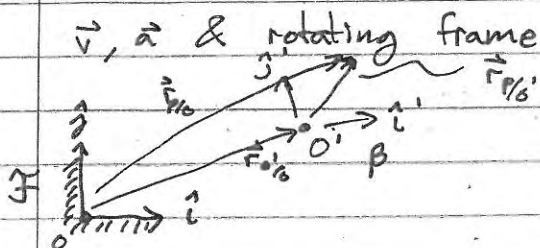 v⃗, a⃗ & rotating frame
ĵ'
r⃗p/o
r⃗p/o'
ĵ
r⃗o'/o
O'
î'
β
F
î
o